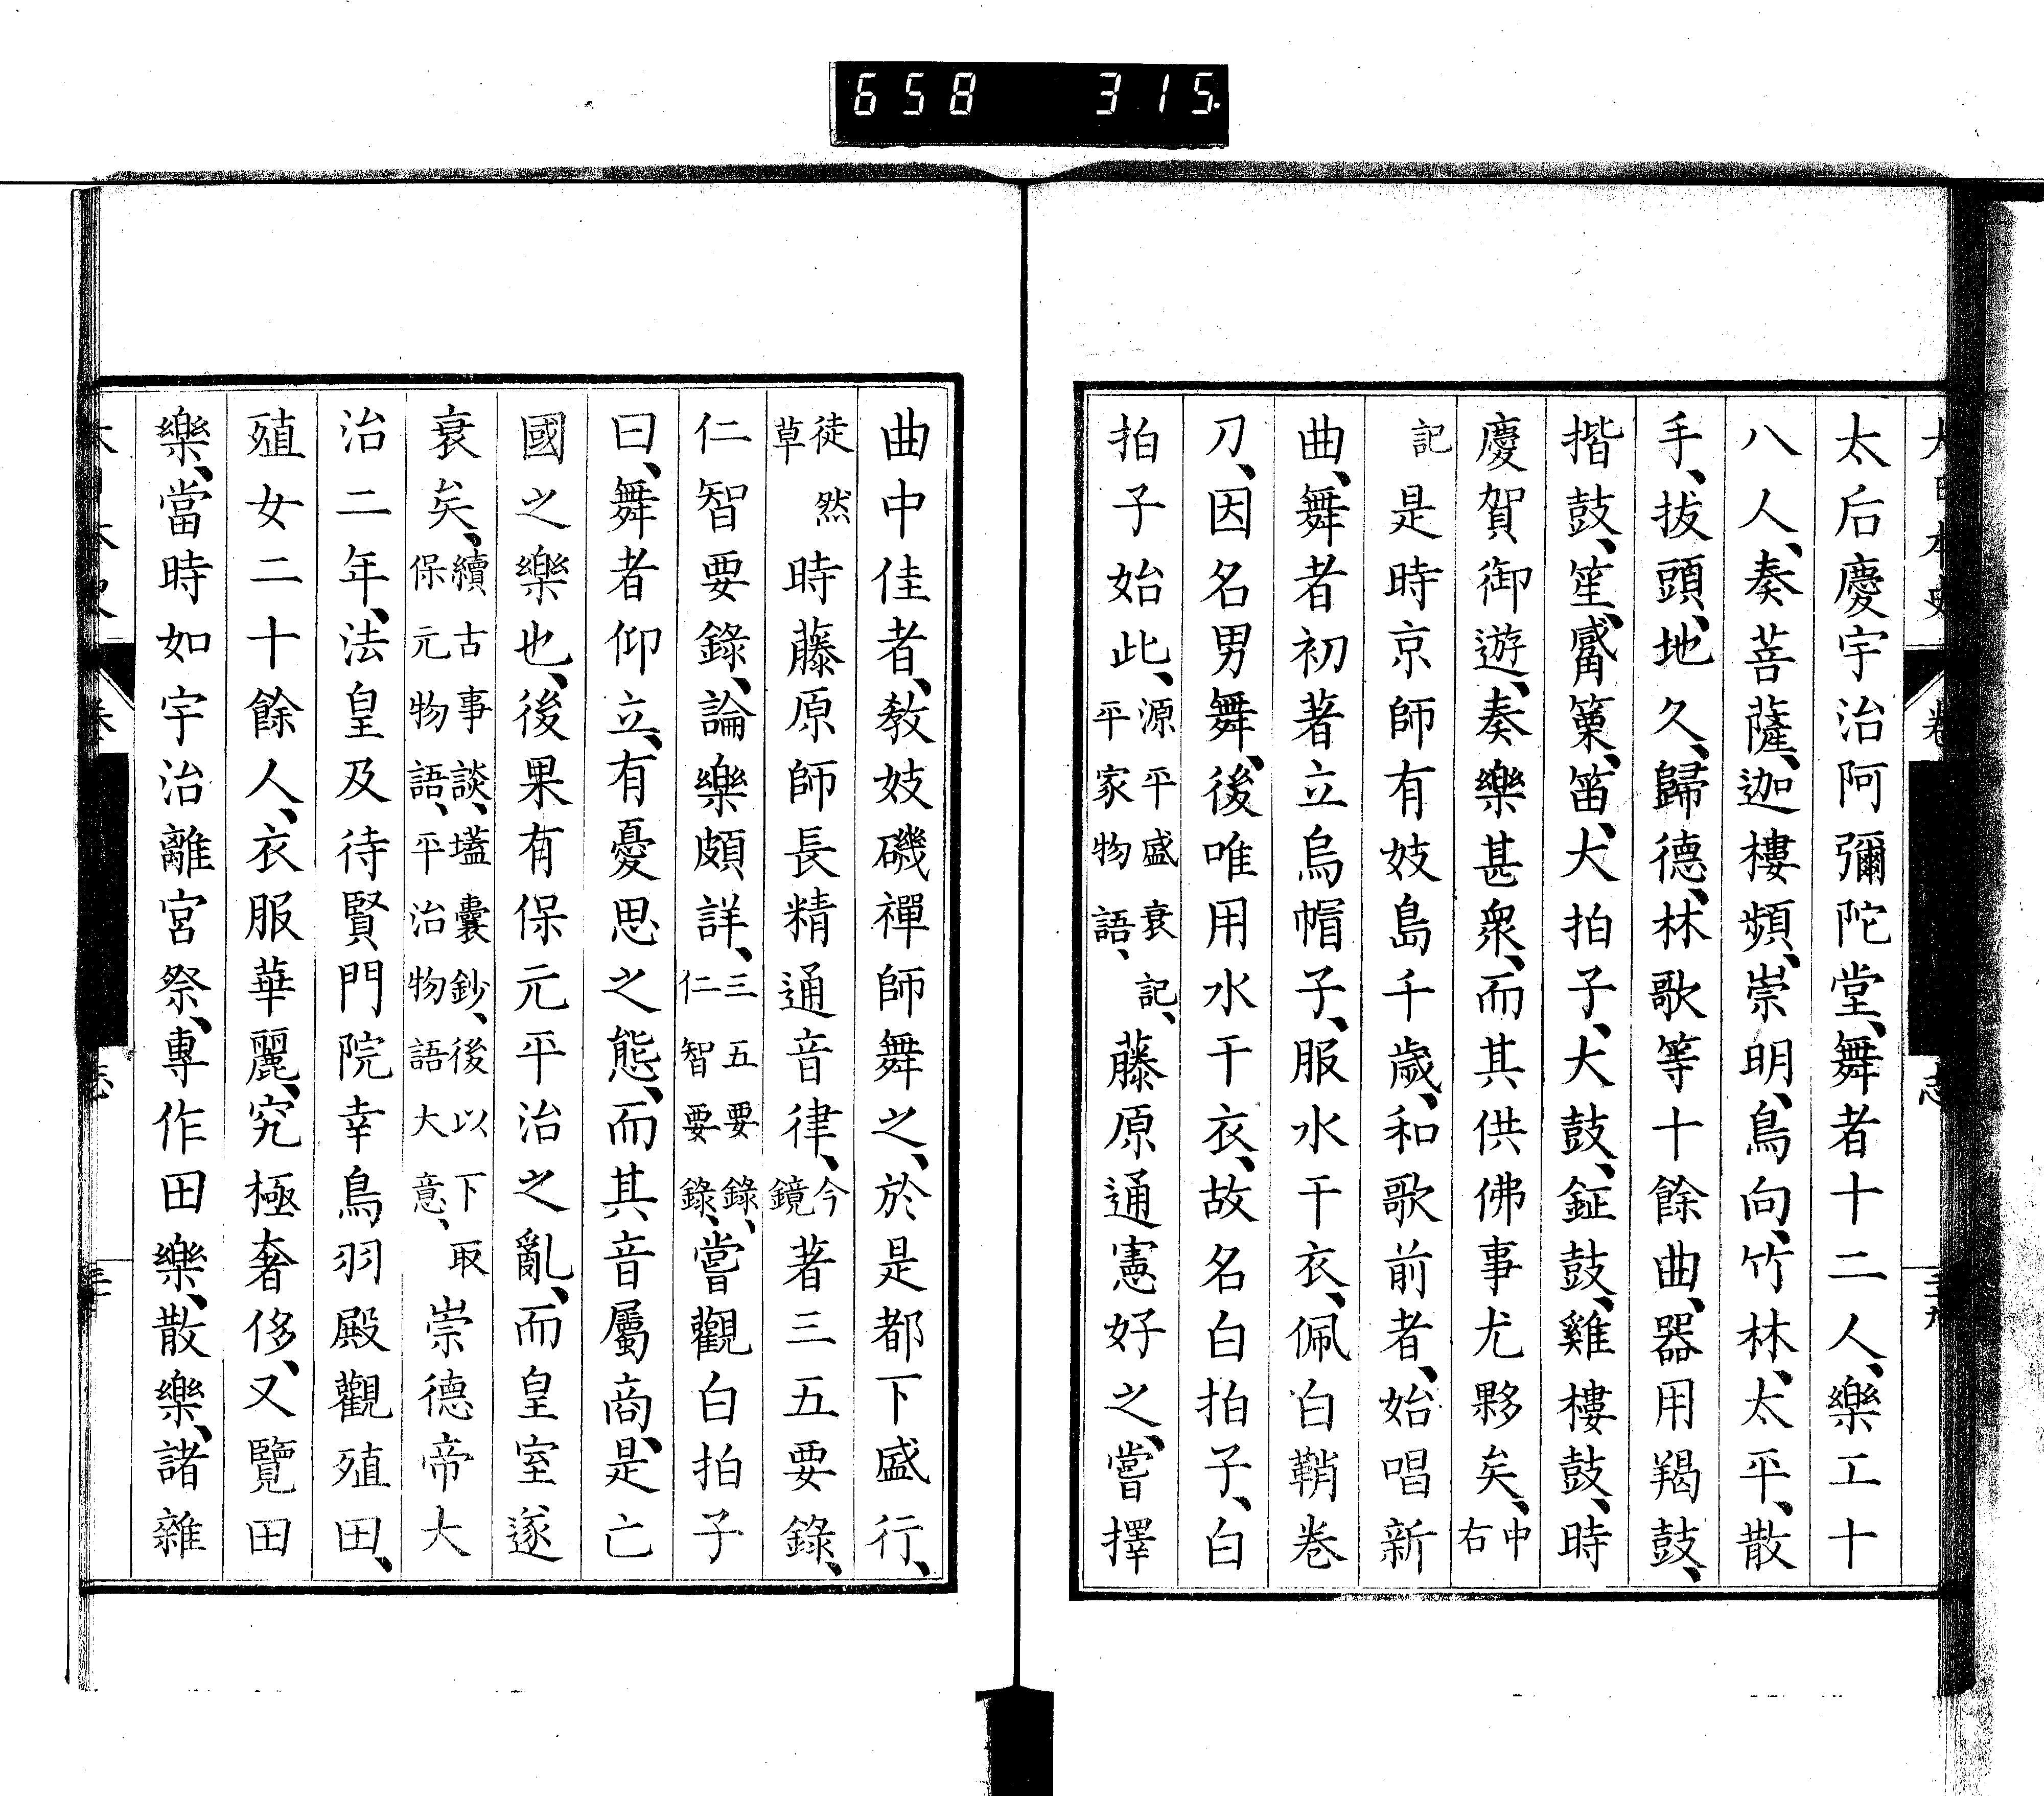 658 315
太后慶宇治阿彌陀堂、舞者十二人、樂工十
八人、奏菩薩、迦樓頻、崇明、鳥向、竹林、太平、散
手、拔頭、地久、歸德、林歌等十餘曲、器用羯鼓、
揩鼓、笙、觱篥、笛、犬拍子、大鼓、鉦鼓、雞樓鼓、時
慶賀御遊、奏樂甚衆、而其供佛事尤夥矣、中右
記是時京師有妓島千歲、和歌前者、始唱新
曲、舞者初著立烏帽子、服水干衣、佩白鞘卷
刀、因名男舞、後唯用水干衣、故名白拍子、白
拍子始此、源平盛衰記、平家物語、藤原通憲好之、嘗擇
曲中佳者、敎妓磯禪師舞之、於是都下盛行、
徒然草時藤原師長精通音律、今鏡著三五要錄、
仁智要錄、論樂頗詳、三五要錄、仁智要錄、嘗觀白拍子
曰、舞者仰立、有憂思之態、而其音屬商、是亡
國之樂也、後果有保元平治之亂、而皇室遂
衰矣、續古事談、壒囊鈔、後以下取保元物語、平治物語大意、崇德帝大
治二年、法皇及待賢門院幸鳥羽殿觀殖田、
殖女二十餘人、衣服華麗、究極奢侈、又覽田
樂、當時如宇治離宮祭、專作田樂、散樂、諸雜